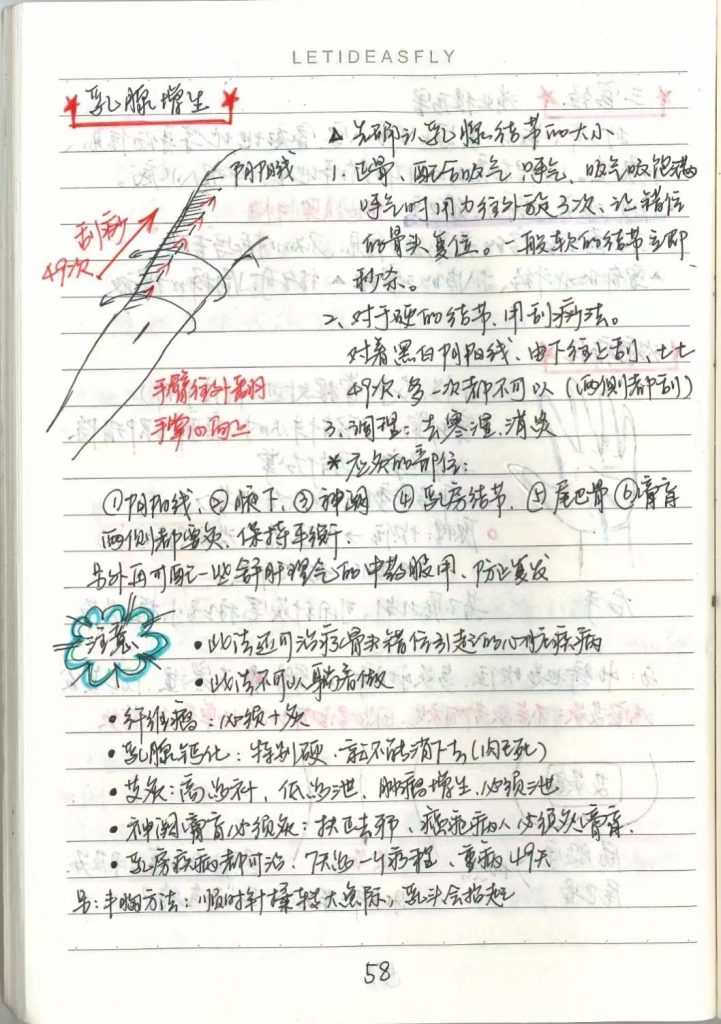 LETIDEASFLY
乳腺增生
△先确认乳腺结节的大小
阴阳线
1、正骨、配合吸气呼气、吸气吸饱满
呼气时用力往外旋3次,让错位
的骨头复位。一般软的结节立即
秒杀。
刮痧
49次
2、对于硬的结节、用刮痧法。
对着黑白阴阳线、由下往上刮,七七
49次,多一次都不可以(两侧都刮)
手臂往外翻
手掌心向上
3、调理:去寒湿、消炎
*应灸的部位:
①阴阳线、②腋下、③神阙 ④乳房结节、⑤尾巴骨⑥膏肓
两侧都要灸、保持平衡
另外再可配一些舒肝理气的中药服用、防止复发
注意
•此法还可治疗骨头错位引起的心脏疾病
•此法不可以躺着做
•纤维瘤:必须+灸
•乳腺钙化:特别硬、就不能消下去(肉已死)
•艾灸:高为补、低为泄、肿瘤增生、必须泄
•神阙膏肓必须灸:扶正去邪、癌症病人必须灸膏肓.
•乳房疾病都可治:7天为一疗程、重病49天
另:丰胸方法:顺时针揉转大鱼际,乳头会抬起
58